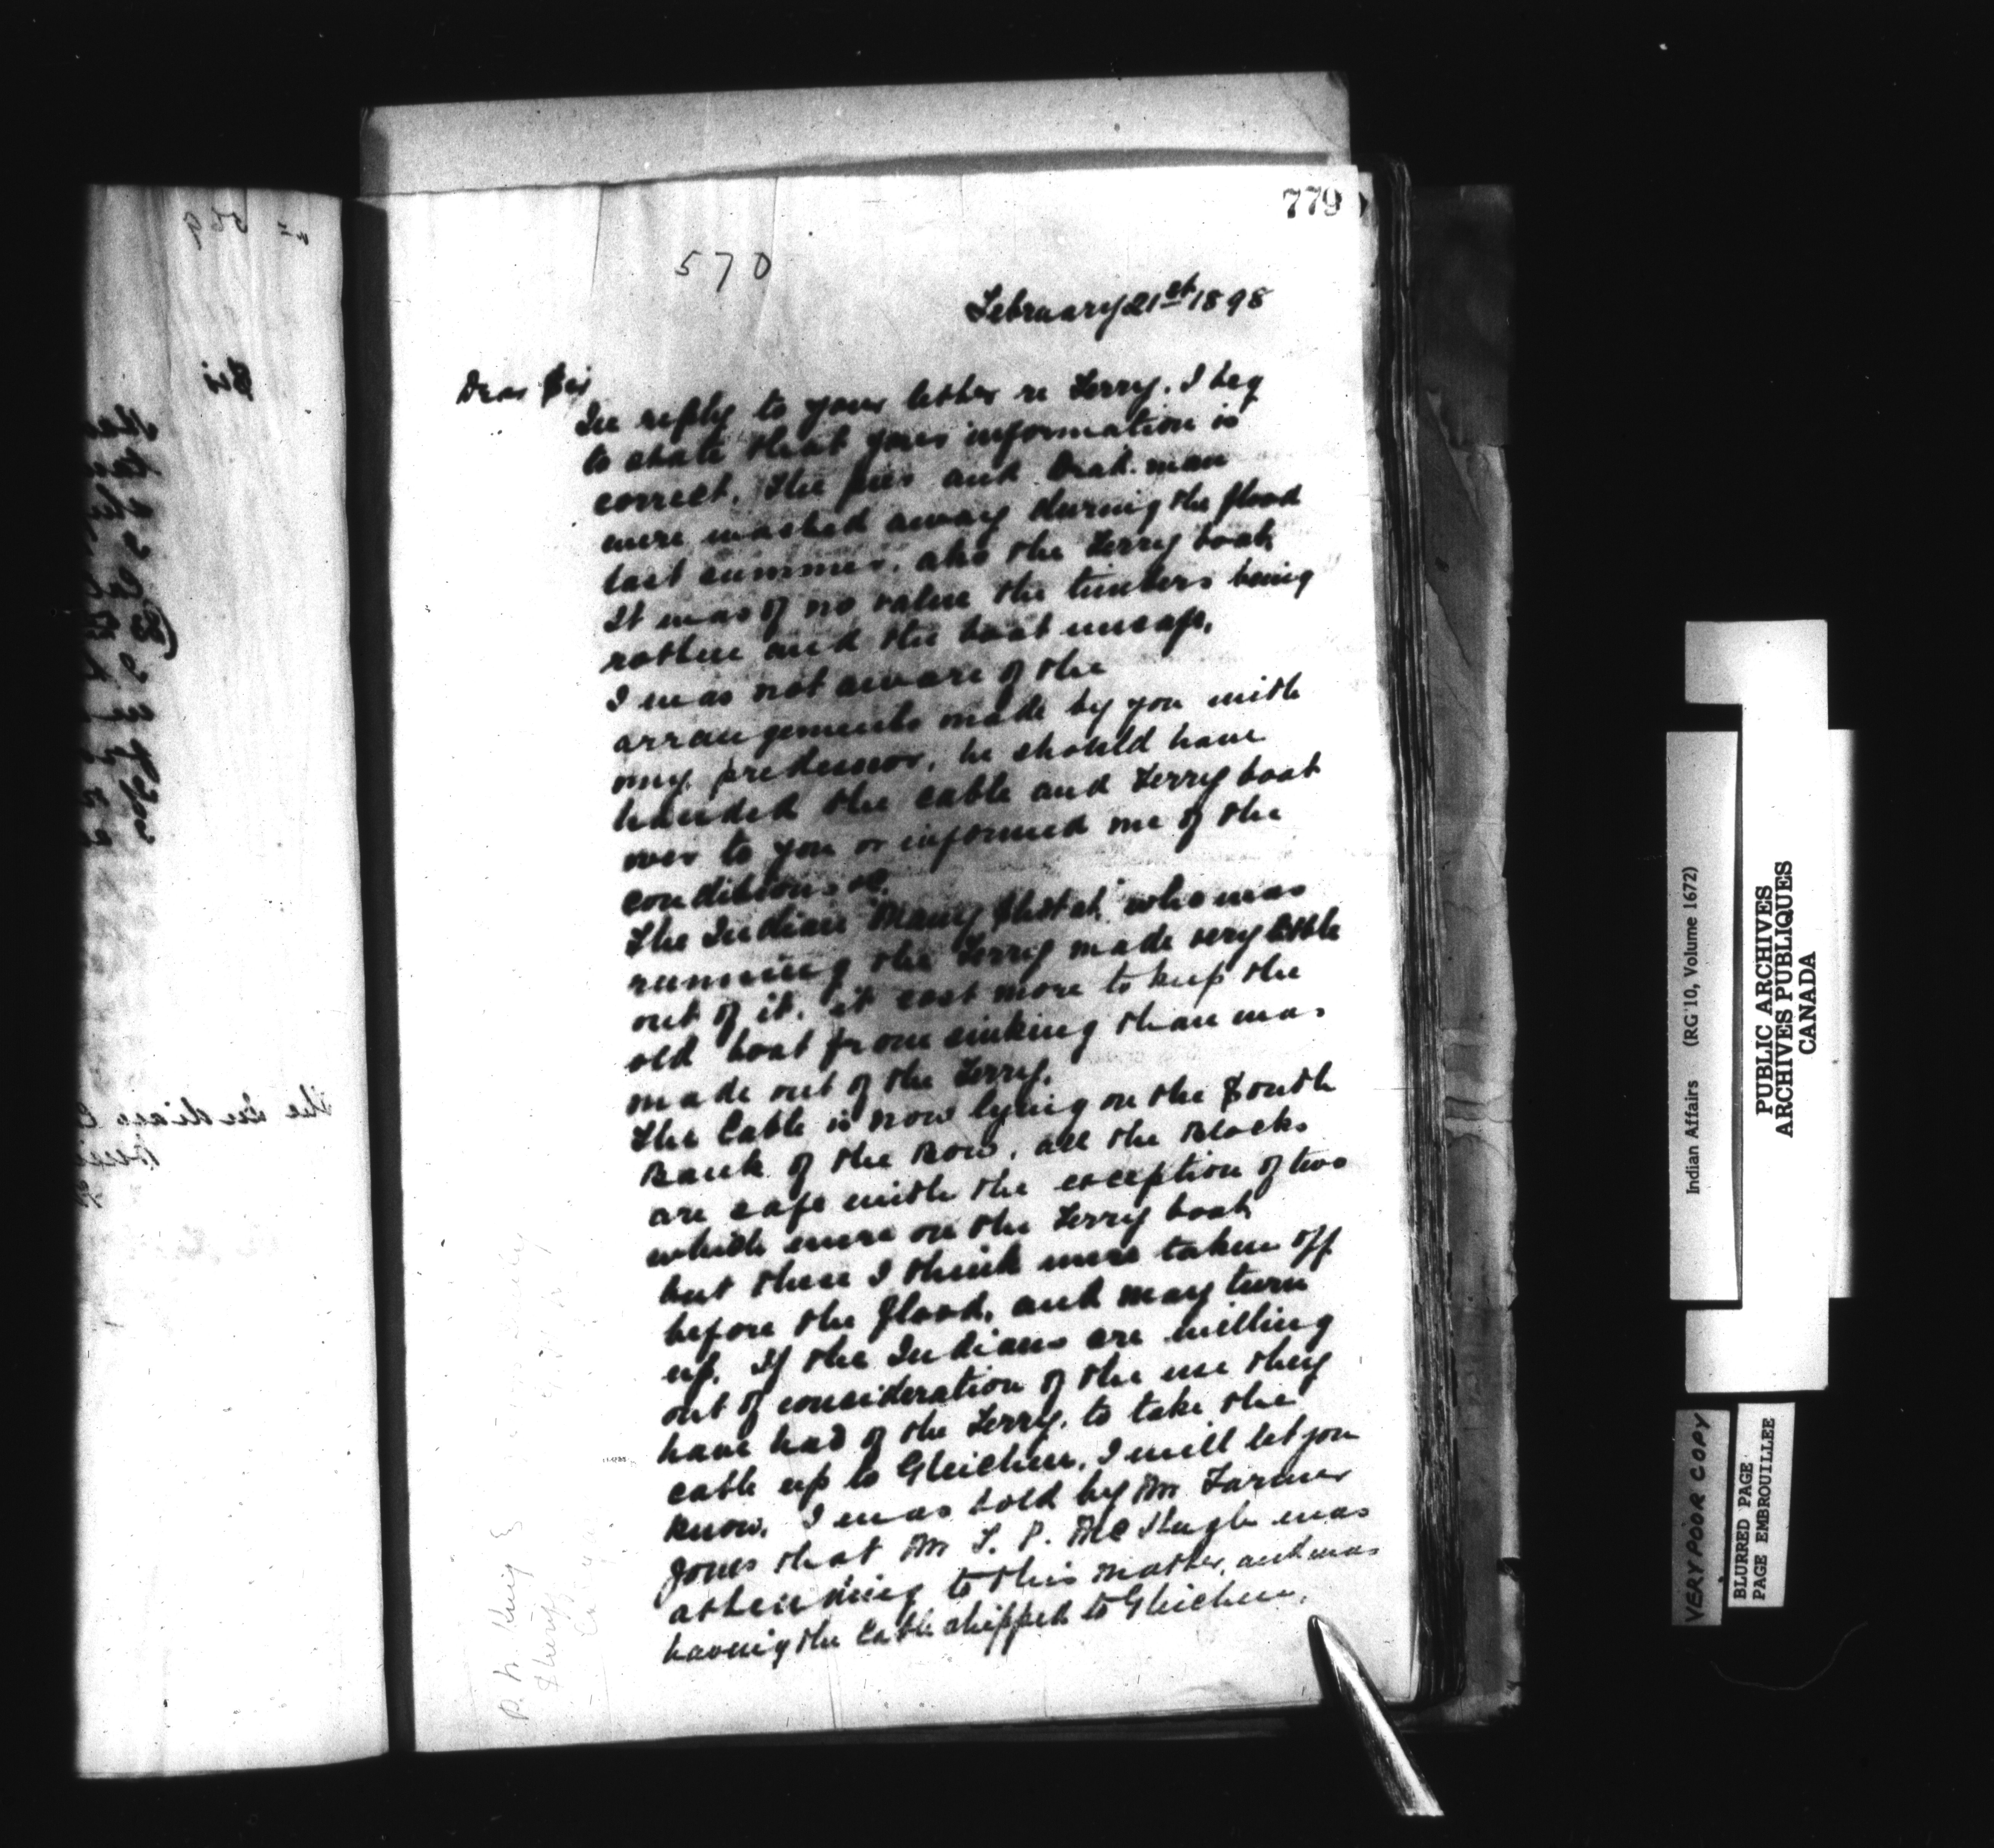 779
570
February 21st 1898
Dear Sir
In reply to your letter re Ferry. I beg
to state that your information is
correct. The pier and Dead. man
were washed away during the flood
last summer. also the Ferry boat
It was of no value the timbers being
rotten and the boat unsafe.
I was not aware of the
arrangements made by you with
my predessor, he should have
handed the cable and Ferry boat
over to you or informed me of the
conditions &c.
The Indian "Many Shots" who was
running the Ferry made very little
out of it. it cost more to keep the
old boat from sinking than was
made out of the Ferry.
The Cable is now lying on the South
Bank of the Bow, all the Blocks
are safe with the exception of two
which were on the Ferry boat
but these I think were taken off
before the flood, and may turn
up. If the Indians are willing
out of consideration of the use they
have had of the Ferry. to take the
cable up to Gleichen, I will let you
know. I was told by Mr Farmer
Jones that Mr F. P. McHugh was
attending to this matter, and was
having the Cable shipped to Gleichen.
Indian Affairs (RG 10, Volume 1672)
PUBLIC ARCHIVES
ARCHIVES PUBLIQUES
CANADA
VERY POOR COPY
BLURRED PAGE
PAGE EMBROUILLEE